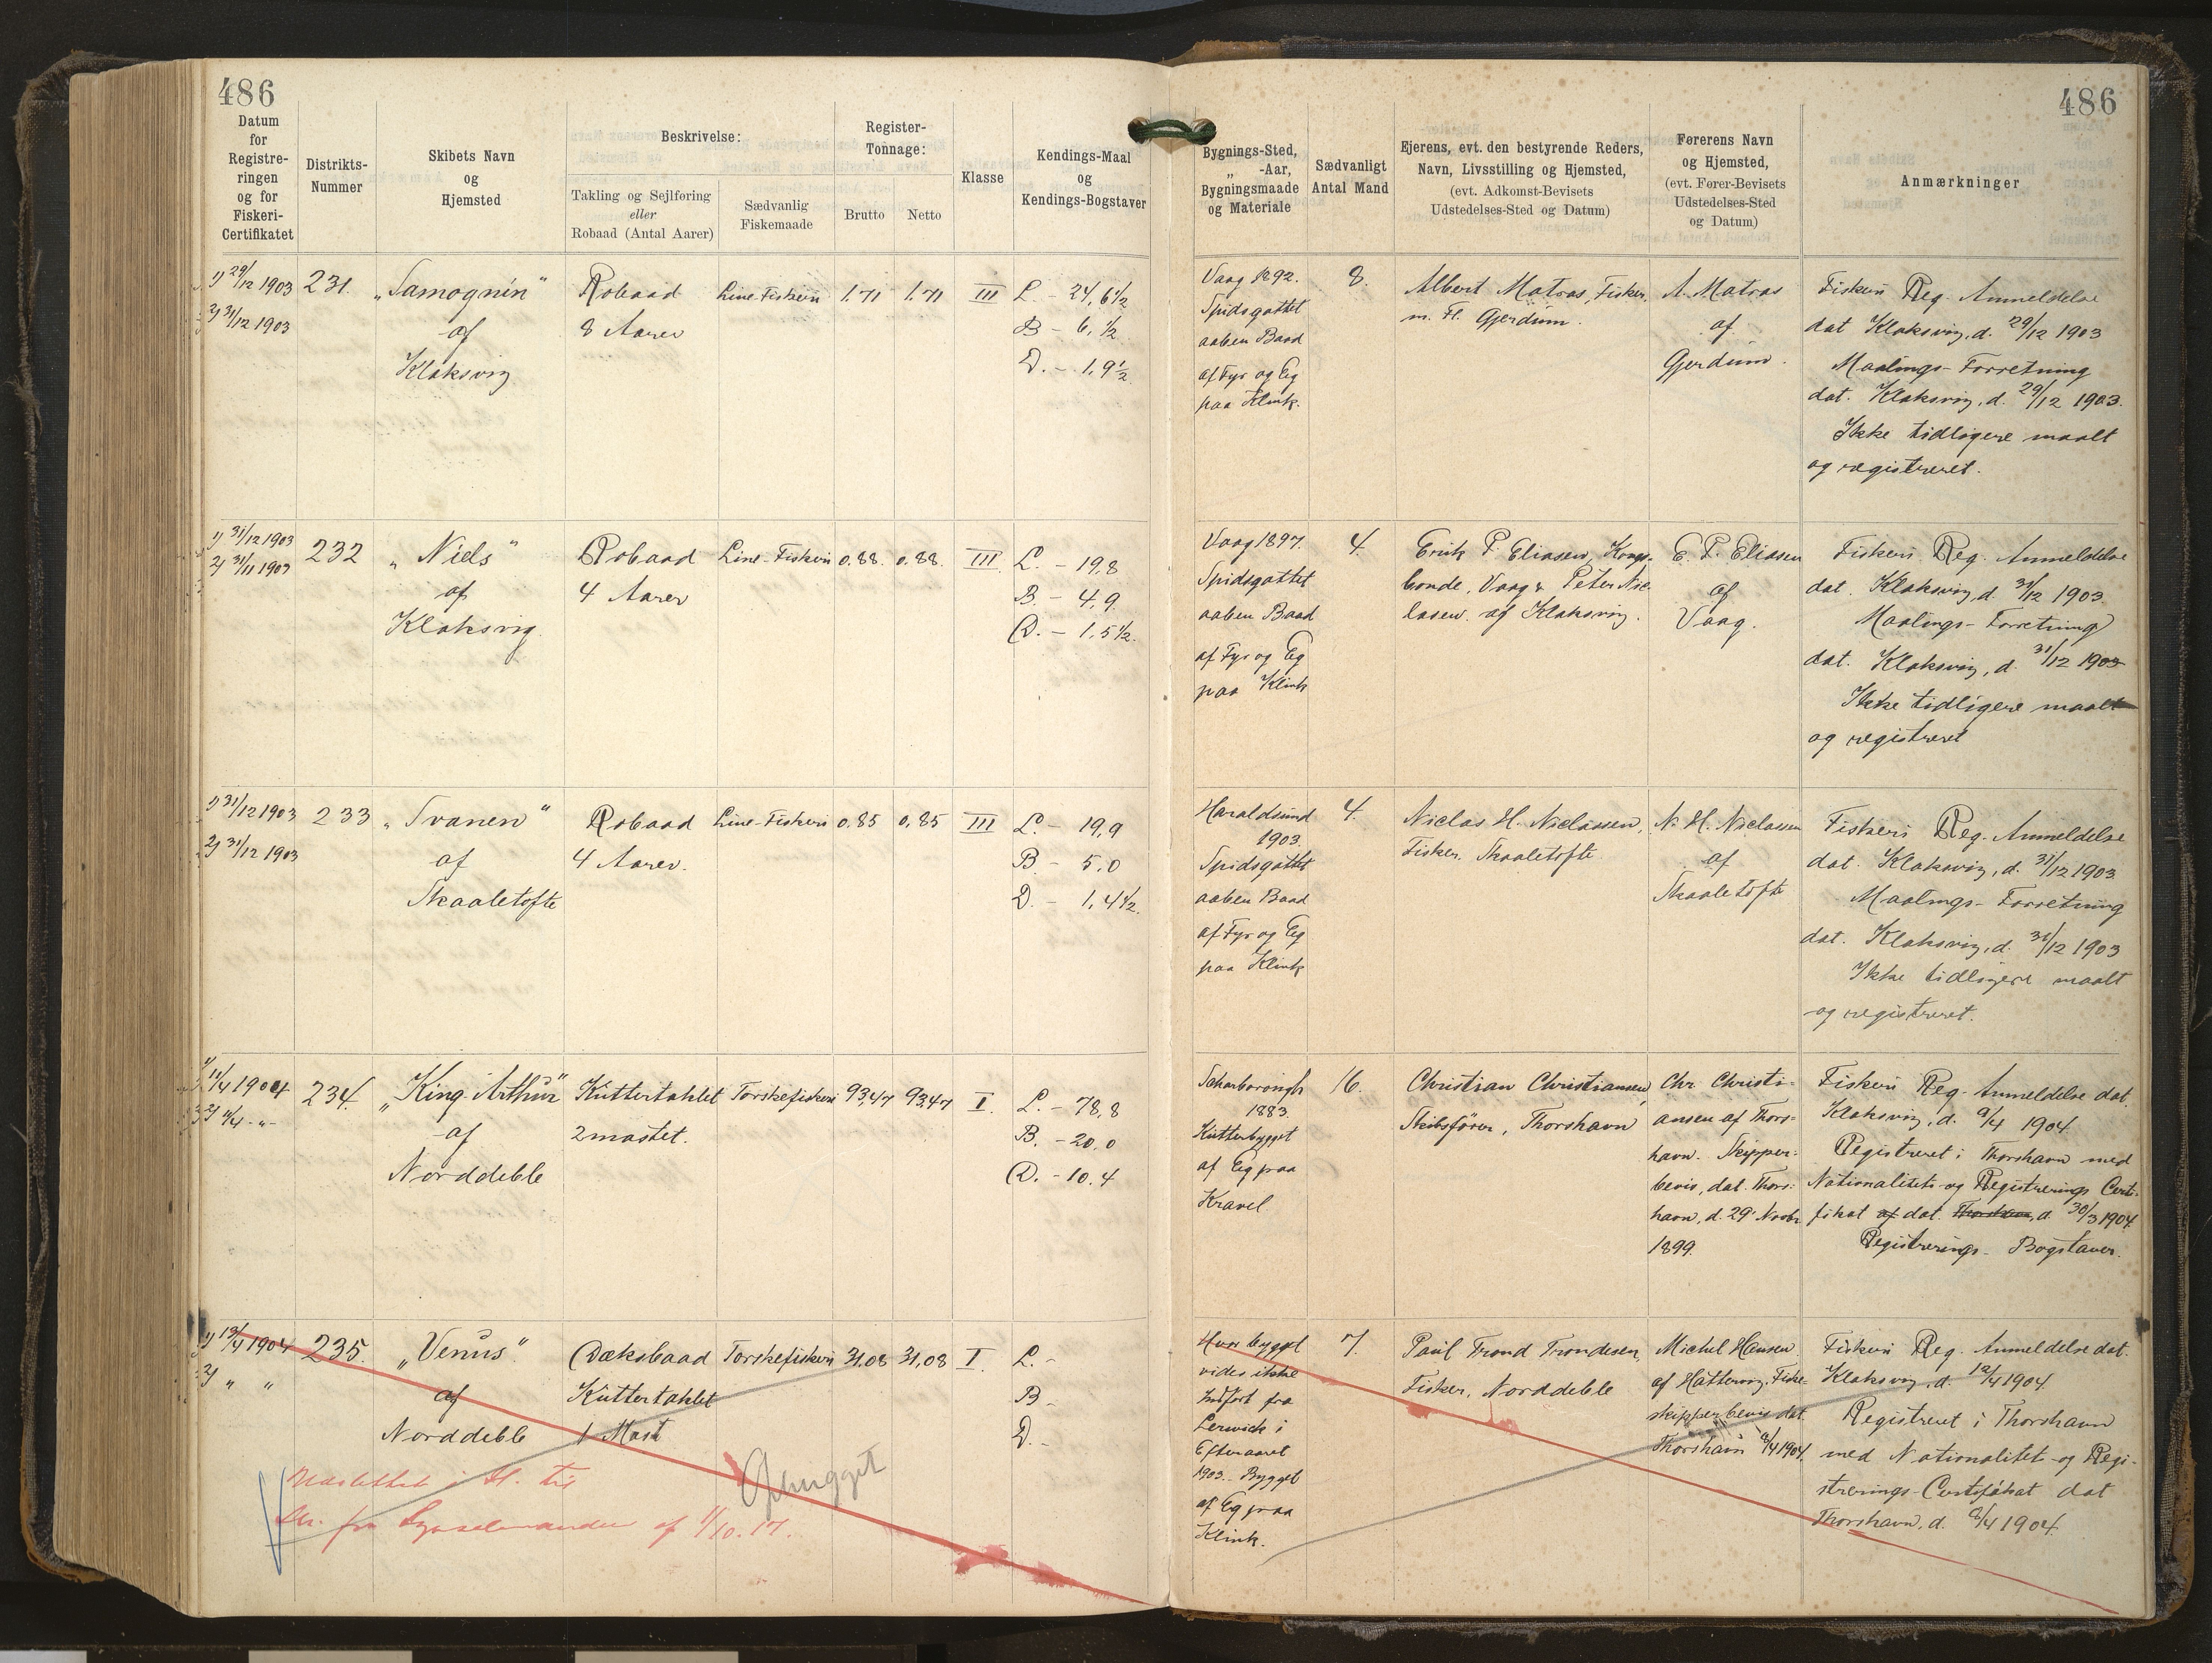 486
486
Datum
for
Registre-
ringen
og for
Fiskeri-
Certifikatet
Distrikts-
Nummer
Skibets Navn
og
Hjemsted
Beskrivelse:
Takling og Sejlføring
eller
Robaad (Antal Aarer)
Sædvanlig
Fiskemaade
Register-
Tonnage:
Brutto
Netto
Klasse
Kendings-Maal
og
Kendings-Bogstaver
Bygnings-Sted,
„ -Aar,
Bygningsmaade
og Materiale
Sædvanligt
Antal Mand
Ejerens, evt. den bestyrende Reders,
Navn, Livsstilling og Hjemsted,
(evt. Adkomst-Bevisets
Udstedelses-Sted og Datum)
Førerens Navn
og Hjemsted,
(evt. Fører-Bevisets
Udstedelses-Sted
og Datum)
Anmærkninger
1) 29/12 1903
2) 31/12 1903
231.
„Samognin“
af
Klaksvig
Robaad
8 Aarer
Line-Fiskeri
1.71
1.71
III
L. - 24,6½
B - 6,½
D. - 1,9½
Vaag 1892.
Spidsgattet
aaben Baad
af Fyr og Eg
paa Klink.
8.
Albert Matras, Fisker,
m. Fl. Gjerdum.
A. Matras
af
Gjerdum.
Fiskeri Reg. Anmeldelse
dat Klaksvig, d. 29/12 1903
Maalings-Forretning
dat. Klaksvig, d. 29/12 1903.
Ikke tidligere maalt
og registreret.
1) 31/12 1903
2) 31/11 1903
232
„Niels“
af
Klaksvig.
Robaad
4 Aarer
Line-Fiskeri
0.88.
0.88.
III
L. - 19,8
B. - 4,9
D. - 1,5½.
Vaag 1897.
Spidsgattet
aaben Baad
af Fyr og Eg
paa Klink
4.
Erik P. Eliasen, Kongs-
bonde, Vaag & Peter Nic-
lasen. af Klaksvig.
E. P. Eliasen
af
Vaag.
Fiskeri Reg. Anmeldelse
dat. Klaksvig, d. 31/12 1903.
Maalings-Forretning
dat. Klaksvig, d. 31/12 1903
Ikke tidligere maalt
og registreret
1) 31/12 1903
2) 31/12 1903
233
„Svanen“
af
Skaaletofte
Robaad
4 Aarer.
Line-Fiskeri
0.85
0,85
III
L. - 19,9
B. 5,0
D. - 1,4½.
Haraldsund
1903.
Spidsgattet
aaben Baad
af Fyr og Eg
paa Klink
4.
Niclas H. Niclassen,
Fisker. Skaaletofte.
N. H. Niclassen
af
Skaaletofte
Fiskeri Reg. Anmeldelse
dat. Klaksvig, d. 31/12 1903.
Maalings-Forretning
dat. Klaksvig, d. 31/12 1903
Ikke tidligere maalt
og registreret.
1) 11/4 1904
2) 11/4 -"-
234.
„King Arthur“
af
Norddeble
Kuttertaklet
2mastet.
Torskefiskeri
93,47
93,47
I.
L. - 78,8
B. - 20,0
D. - 10.4
Scharborough
1883.
Kutterbygget
af Eg paa
Kravel
16.
Christian Christiansen,
Skibsfører, Thorshavn
Chr. Christi-
ansen af Thors-
havn. Skipper-
bevis, dat. Thors-
havn, d. 29' Novbr.
1899.
Fiskeri Reg. Anmeldelse dat.
Klaksvig, d. 9/4 1904.
Registreret i Thorshavn med
Nationalitets-og Registrerings Certi-
fikat af dat. Thorshavn, d. 30/3 1904.
Registrerings-Bogstaver.
1) 13/4 1904
2) " "
235.
„Venus“
af
Norddeble
Dæksbaad
Kuttertaklet
1 Mast
Torskefiskeri
31,08
31,08
I
L. -
B -
D. -
Ophugget
Udslettet i H. til
Skr. fra Sysselmanden af 1/10. 17.
Hvor bygget
vides ikke
Indført fra
Lerwick i
Efteraaret
1903. Bygget
af Eg paa
Klink.
7.
Paul Trond Trondesen,
Fisker, Norddeble
Michel Hansen
af Hattervig. Fiske-
skipperbevis dat.
Thorshavn 8/4 1904.
Fiskeri Reg. Anmeldelse dat.
Klaksvig, d. 12/4 1904.
Registreret i Thorshavn
med Nationalitets-og Regi-
strerings-Certifikat dat
Thorshavn, d. 8/4 1904.